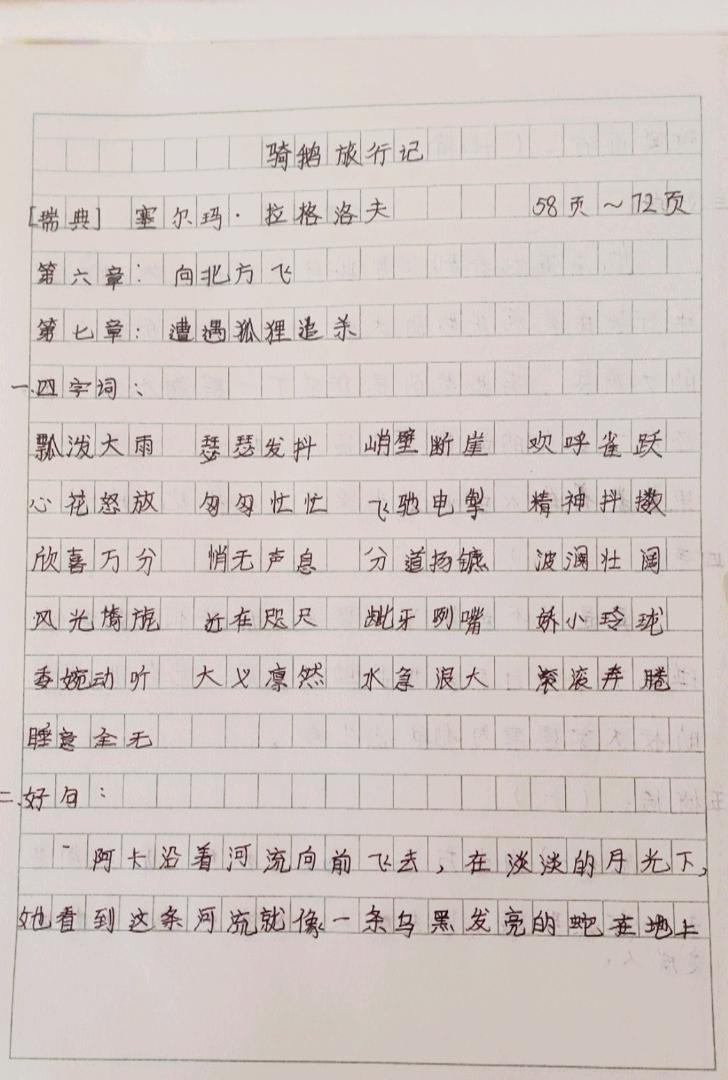 骑鹅旅行记
[瑞典] 塞尔玛·拉格洛夫 58页~72页
第六章：向北方飞
第七章：遭遇狐狸追杀
一.四字词：
瓢泼大雨 瑟瑟发抖 峭壁断崖 欢呼雀跃
心花怒放 匆匆忙忙 飞驰电掣 精神抖擞
欣喜万分 悄无声息 分道扬镳 波澜壮阔
风光旖旎 近在咫尺 龇牙咧嘴 娇小玲珑
委婉动听 大义凛然 水急浪大 滚滚奔腾
睡意全无
二.好句：
阿卡沿着河流向前飞去，在淡淡的月光下，
她看到这条河流就像一条乌黑发亮的蛇在地上